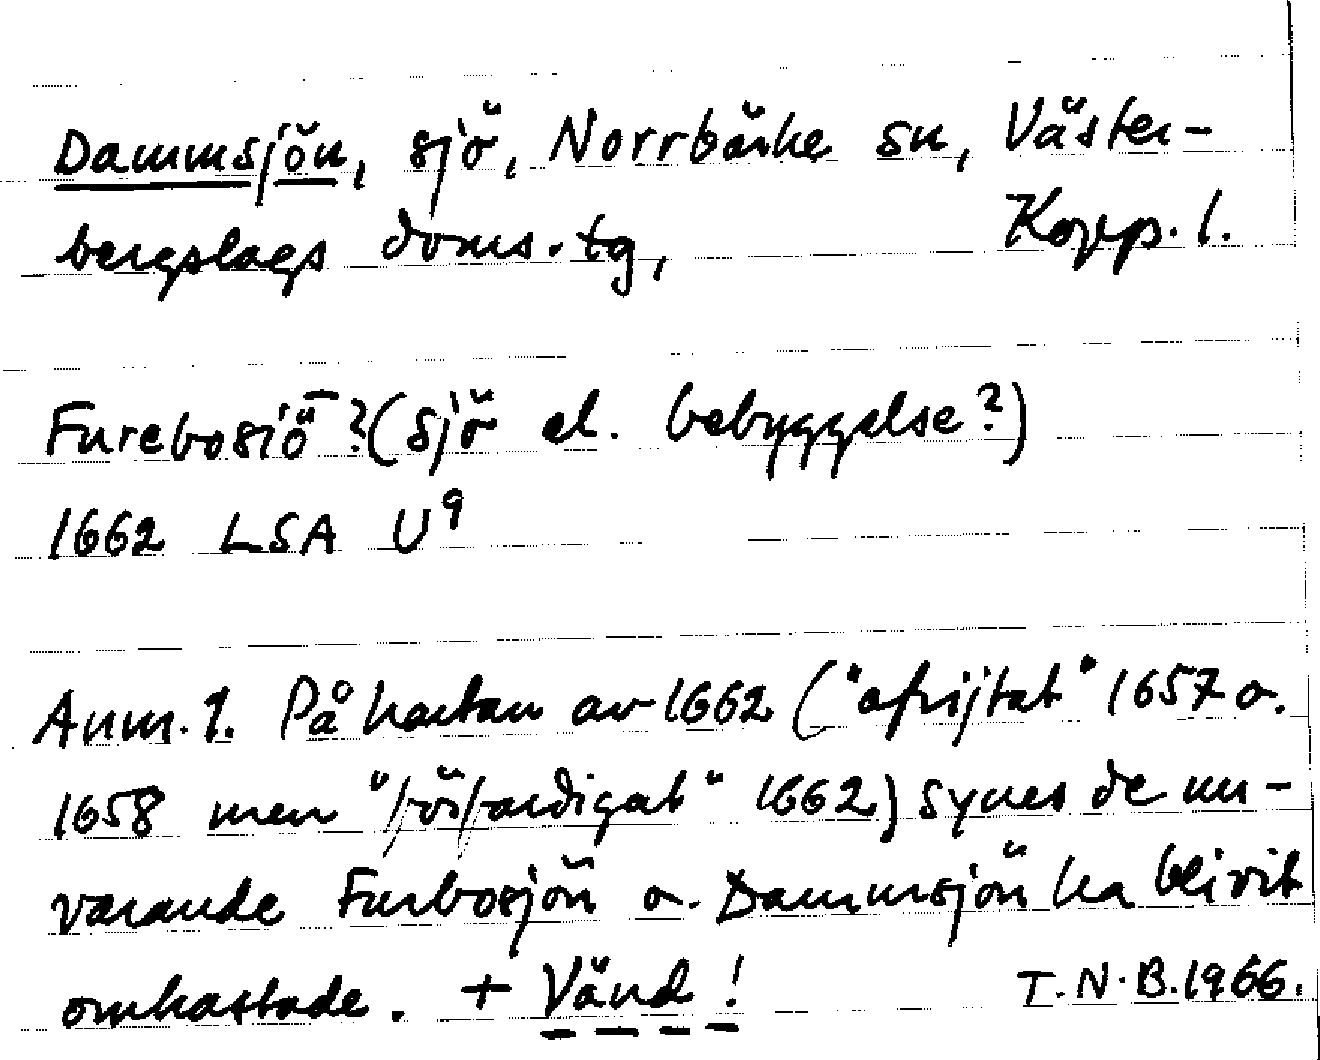 Dammsjön, sjö, Norrbärke sn, Väster-
bergslags doms. tg, Kopp. l.
Furebosiö ? (sjö el. bebyggelse?)
1662 LSA U9
Anm. 1. På kartan av 1662 ("afrijtat" 1657 o.
1658 men "förfärdigat" 1662) synes de nu-
varande Furbosjön o. Dammsjön ha blivit
omkastade. + Vänd!
T.N.B. 1966.